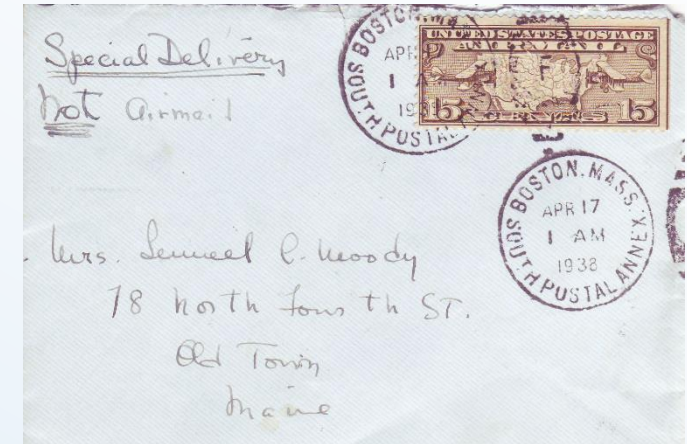 Special Delivery
Not Airmail
BOSTON, MASS.
APR
1
193
SOUTH POSTAL ANNEX
UNITED STATES POSTAGE
AIR MAIL
15 CENTS 15
BOSTON, MASS.
APR 17
1 AM
1938
SOUTH POSTAL ANNEX
Mrs. Lemuel C. Moody
78 North Fourth ST.
Old Town
Maine